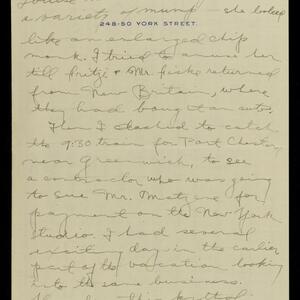 a variety of mump she looked
248-50 YORK STREET.
like an enlarged chip
monk. I tried to amuse her
till Fritzie & Mr. Fiske returned
from New Britain, where
they had bought an auto.
Then I dashed to catch
the 9:30 train for Port Chester,
near Greenwich, to see
a contractor who was going
to sue Mr. Matzene for
payment on the New York
studio. I had several
exciting day in the earlier
part of the vacation looking
into the same business.